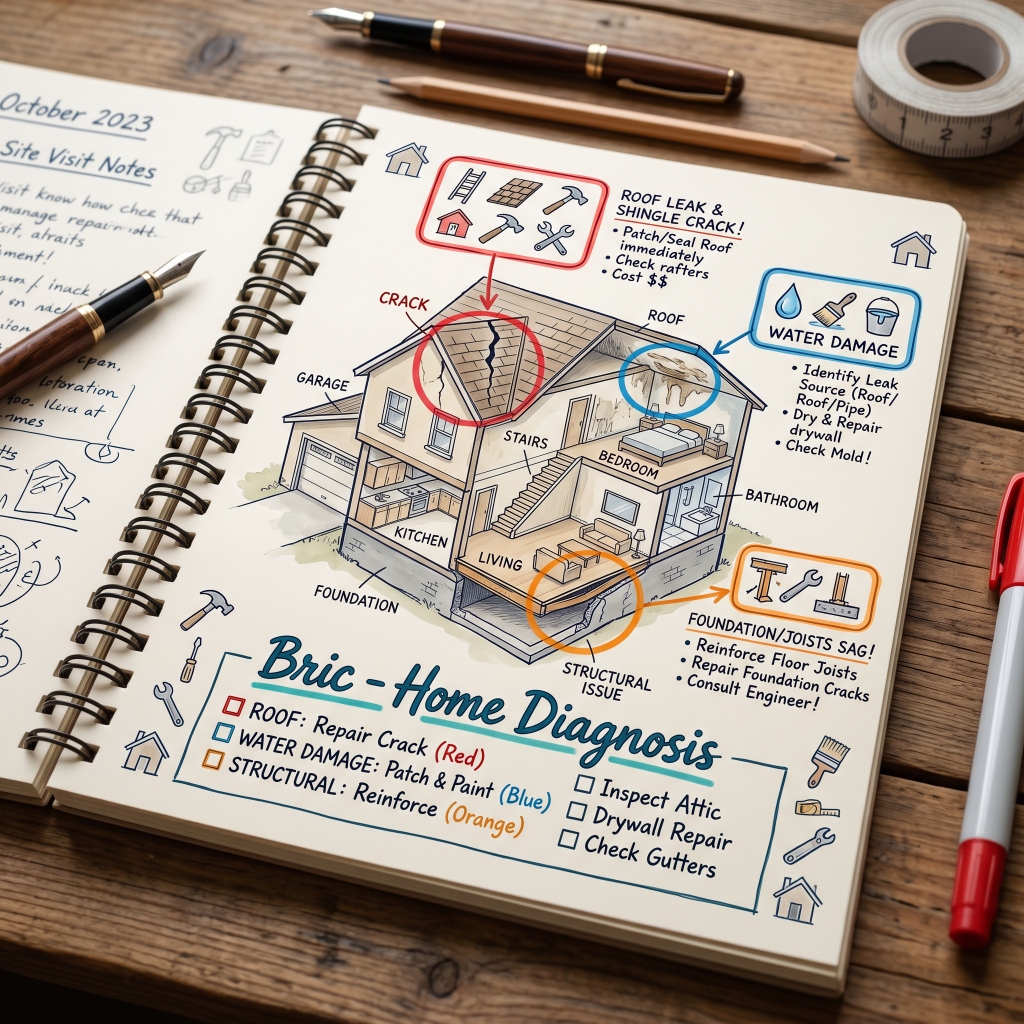 October 2023
Site Visit Notes
visit know how chee that
manage
ROOF LEAK &
SHINGLE CRACK!
• Patch/Seal Roof
immediately
• Check rafters
• Cost $$
CRACK
ROOF
WATER DAMAGE
• Identify Leak
Source (Roof/
Roof/Pipe)
• Dry & Repair
drywall
• Check Mold!
GARAGE
STAIRS
BEDROOM
BATHROOM
KITCHEN
LIVING
FOUNDATION
STRUCTURAL
ISSUE
FOUNDATION/JOISTS SAG!
• Reinforce Floor Joists
• Repair Foundation Cracks
• Consult Engineer!
Bric - Home Diagnosis
ROOF: Repair Crack (Red)
WATER DAMAGE: Patch & Paint (Blue)
STRUCTURAL: Reinforce (Orange)
Inspect Attic
Drywall Repair
Check Gutters
1 2 3 4